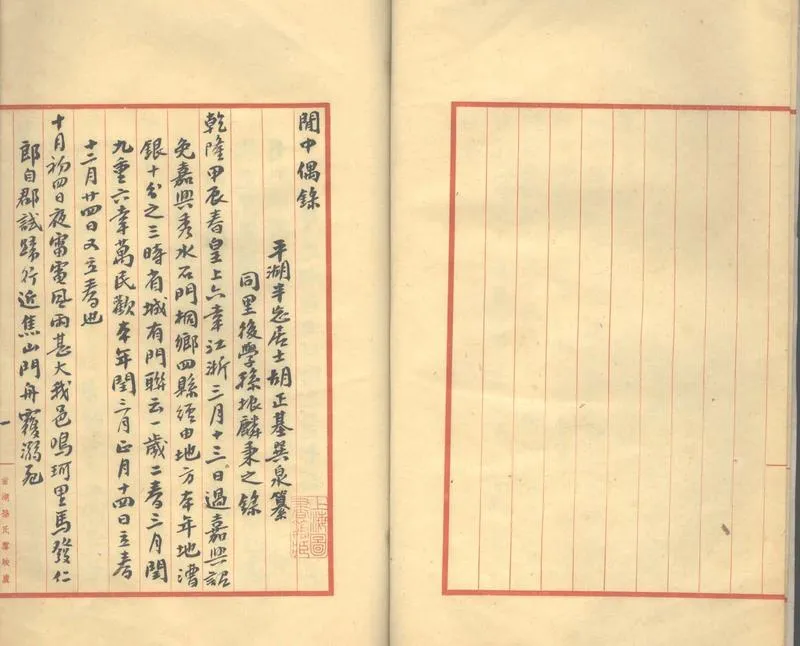 閒中偶錄
平湖半忍居士胡正基巽泉纂
同里後學孫振麟秉之錄
乾隆甲辰春皇上六幸江浙三月十三日過嘉興詔
免嘉興秀水石門桐鄉四縣經由地方本年地漕
銀十分之三時省城有門聯云一歲二春三月閏
九重六幸萬民歡本年閏三月正月十四日立春
十二月廿四日又立春也
十月初四日夜雷電風雨甚大我邑鳴珂里馬發仁
郎自郡試歸行近焦山門舟覆溺死
一
當湖孫氏雪映廬
上海圖書館藏